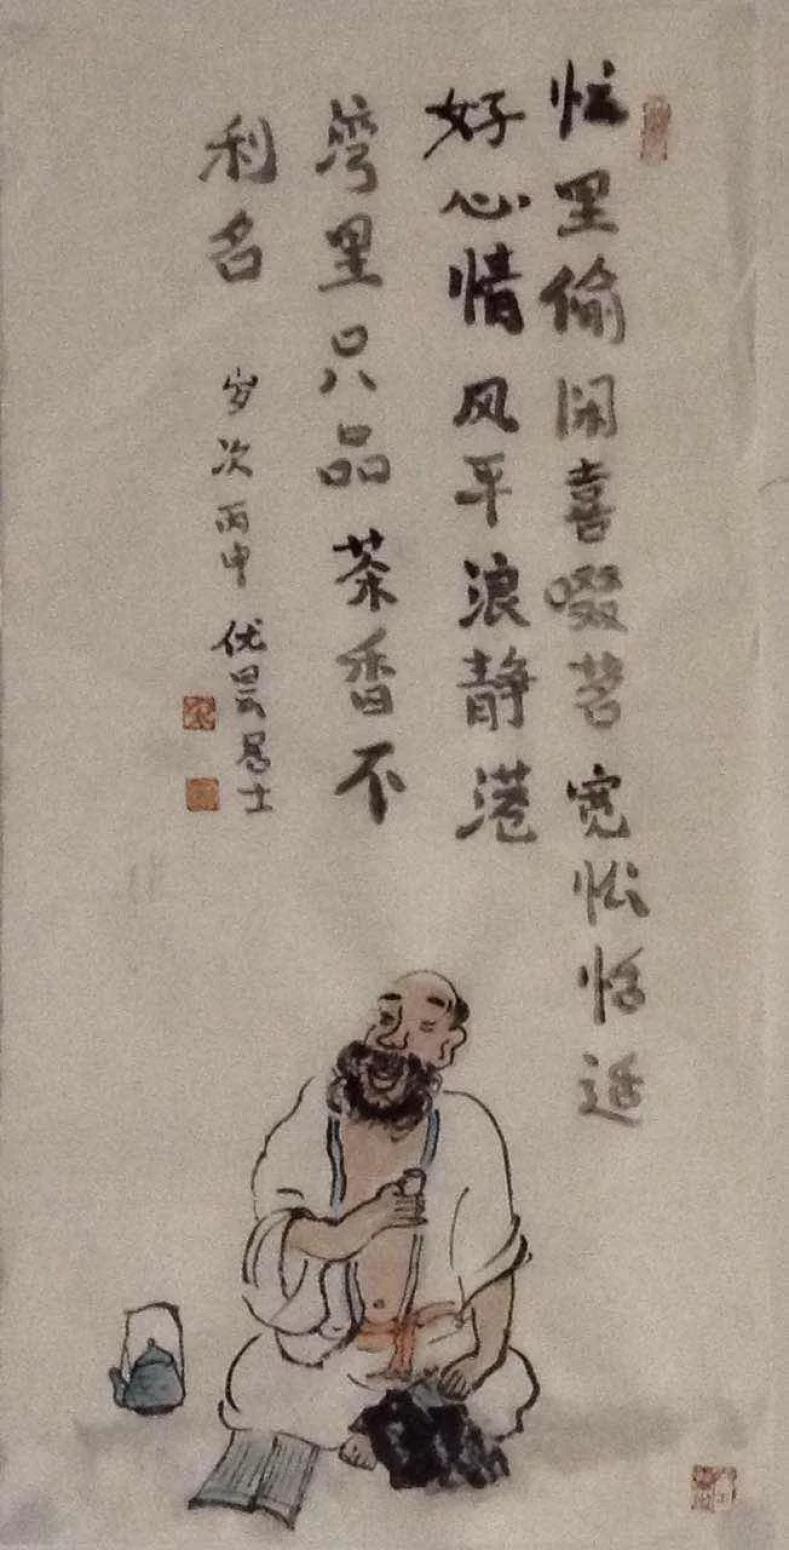 忙里偷闲喜啜茗宽忪恬适
好心情风平浪静港
湾里只品茶香不
利名
岁次丙申优昙居士